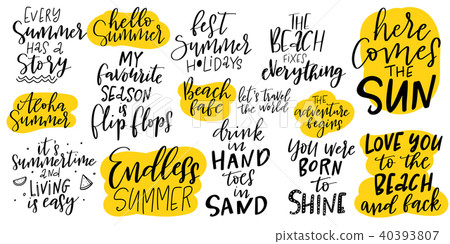 EVERY
Summer
HAS A
Story
hello
Summer
best
Summer
HOLIDAYS
THE
BEACH
FIXES
Everything
here
Comes
THE
SUN
Aloha
Summer
MY
favourite
SEASON
is
flip flops
Beach
babe
let's travel
the world
THE
adventure
begins
it's
summertime
AND
LIVING
is easy
Endless
SUMMER
drink
in
HAND
toes
in
SAND
you were
BORN
to
SHINE
LOVE YOU
to the
BEACH
and back
40393807